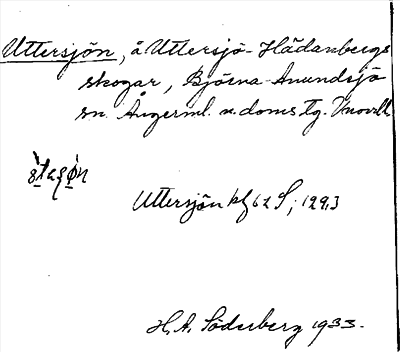 Uttersjön, å Uttersjö-Hädanbergs
skogar, Björna-Anundsjö
sn. Ångerml. n. doms tg. Vnorrl.
Uttersjön kf 62 S; 1293
H. A. Söderberg 1933.